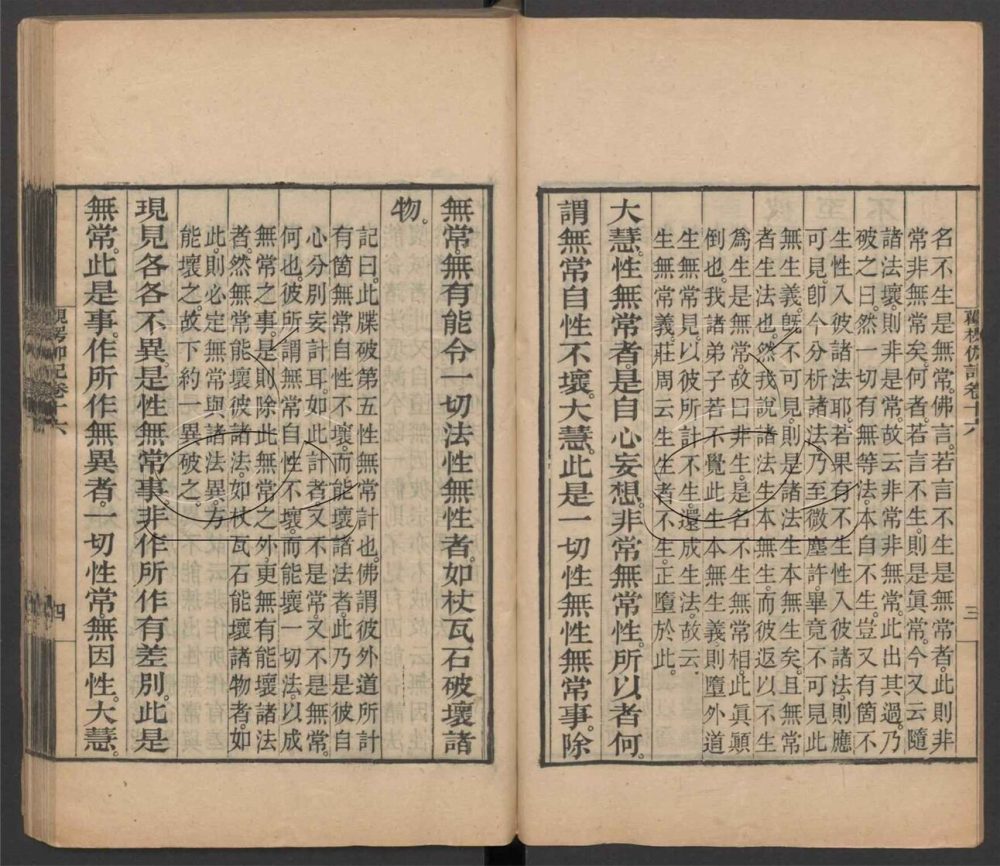 名不生是無常。佛言。若言不生是無常者。此則非
常非無常矣。何者。若言不生。則是眞常。今又云隨
諸法壞。則非是常。故云非常非無常。此出其過。乃
破之曰。然一切有無等法。本自不生。豈又有箇不
生性入彼諸法耶。若果有不生性入彼諸法。則應
可見。卽今分析諸法。乃至微塵許。畢竟不可見。此
無生義。旣不可見。則是諸法生本無生矣。且無常
者。生法也。然我說諸法生本無生。而彼返以不生
爲生。是無常。故曰非生。是名不生無常相。此眞顚
倒也。我諸弟子。若不覺此生本無生義。則墮外道
生無常見。以彼所計不生。還成生法。故云
生無常義。莊周云。生生者不生。正墮於此。
大慧。性無常者。是自心妄想。非常無常性。所以者何。
謂無常自性不壞。大慧。此是一切性無性無常事。除
三
無常。無有能令一切法性無性者。如杖瓦石破壞諸
物。
記曰。此牒破第五性無常計也。佛謂彼外道所計
有箇無常自性不壞。而能壞諸法者。此乃是彼自
心分別妄計耳。如此計者。又不是常。又不是無常。
何也。彼所謂無常自性不壞。而能壞一切法。以成
無常之事。是則除此無常之外。更無有能壞諸法
者。然無常能壞彼諸法。如杖瓦石能壞諸物者。如
此則必定無常與諸法異。方
能壞之。故下約一異破之。
現見各各不異。是性無常事。非作所作有差別。此是
無常。此是事。作所作無異者。一切性常。無因性。大慧。
觀楞伽記卷十六
四